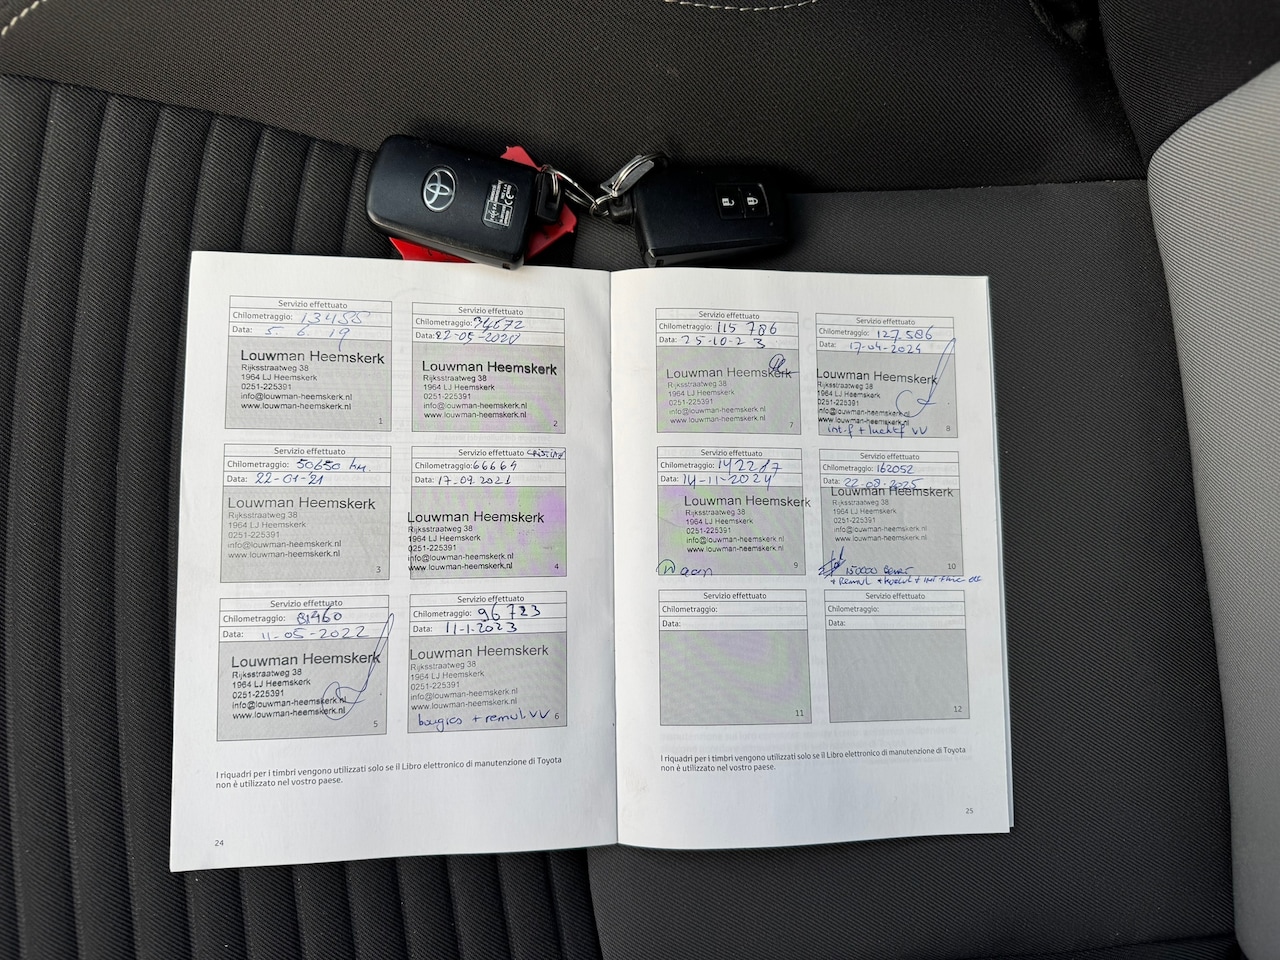 Servizio effettuato
Chilometraggio: 13455
Data: 5. 6. 19
Louwman Heemskerk
Rijksstraatweg 38
1964 LJ Heemskerk
0251-225391
info@louwman-heemskerk.nl
www.louwman-heemskerk.nl
1
Servizio effettuato
Chilometraggio: 34672
Data: 22-05-2020
Louwman Heemskerk
Rijksstraatweg 38
1964 LJ Heemskerk
0251-225391
info@louwman-heemskerk.nl
www.louwman-heemskerk.nl
2
Servizio effettuato
Chilometraggio: 50650 km.
Data: 22-01-21
Louwman Heemskerk
Rijksstraatweg 38
1964 LJ Heemskerk
0251-225391
info@louwman-heemskerk.nl
www.louwman-heemskerk.nl
3
Servizio effettuato
Chilometraggio: 66664
Data: 17.09.2021
Louwman Heemskerk
Rijksstraatweg 38
1964 LJ Heemskerk
0251-225391
info@louwman-heemskerk.nl
www.louwman-heemskerk.nl
4
Servizio effettuato
Chilometraggio: 81460
Data: 11-05-2022
Louwman Heemskerk
Rijksstraatweg 38
1964 LJ Heemskerk
0251-225391
info@louwman-heemskerk.nl
www.louwman-heemskerk.nl
5
Servizio effettuato
Chilometraggio: 96723
Data: 11-1-2023
Louwman Heemskerk
Rijksstraatweg 38
1964 LJ Heemskerk
0251-225391
info@louwman-heemskerk.nl
www.louwman-heemskerk.nl
bougies + remvl VV 6
I riquadri per i timbri vengono utilizzati solo se il Libro elettronico di manutenzione di Toyota
non è utilizzato nel vostro paese.
24
Servizio effettuato
Chilometraggio: 115 786
Data: 25-10-23
Louwman Heemskerk
Rijksstraatweg 38
1964 LJ Heemskerk
0251-225391
info@louwman-heemskerk.nl
www.louwman-heemskerk.nl
7
Servizio effettuato
Chilometraggio: 127.586
Data: 17-04-2024
Louwman Heemskerk
Rijksstraatweg 38
1964 LJ Heemskerk
0251-225391
info@louwman-heemskerk.nl
www.louwman-heemskerk.nl
int.f + luchtf VV 8
Servizio effettuato
Chilometraggio: 142217
Data: 14-11-2024
Louwman Heemskerk
Rijksstraatweg 38
1964 LJ Heemskerk
0251-225391
info@louwman-heemskerk.nl
www.louwman-heemskerk.nl
9
Servizio effettuato
Chilometraggio: 162052
Data: 22-08-2025
Louwman Heemskerk
Rijksstraatweg 38
1964 LJ Heemskerk
0251-225391
info@louwman-heemskerk.nl
www.louwman-heemskerk.nl
10
150000 beurt
+ Remvl + koelvl +
Servizio effettuato
Chilometraggio:
Data:
11
Servizio effettuato
Chilometraggio:
Data:
12
I riquadri per i timbri vengono utilizzati solo se il Libro elettronico di manutenzione di Toyota
non è utilizzato nel vostro paese.
25